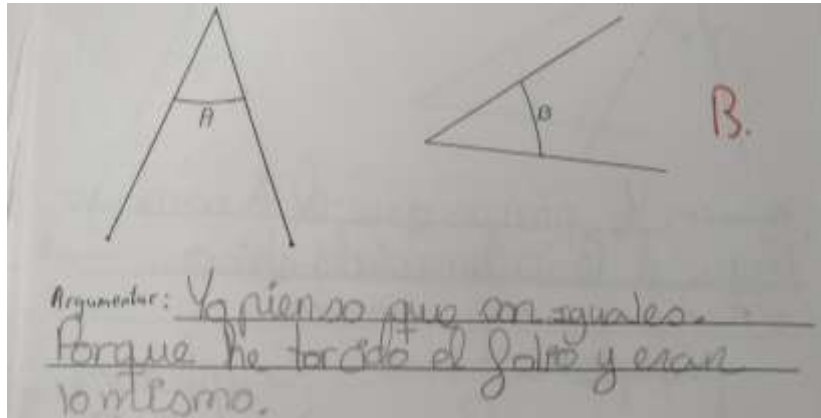 A
B
B.
Argumentar: Yo pienso que son iguales.
Porque he torcido el folio y eran
lo mismo.